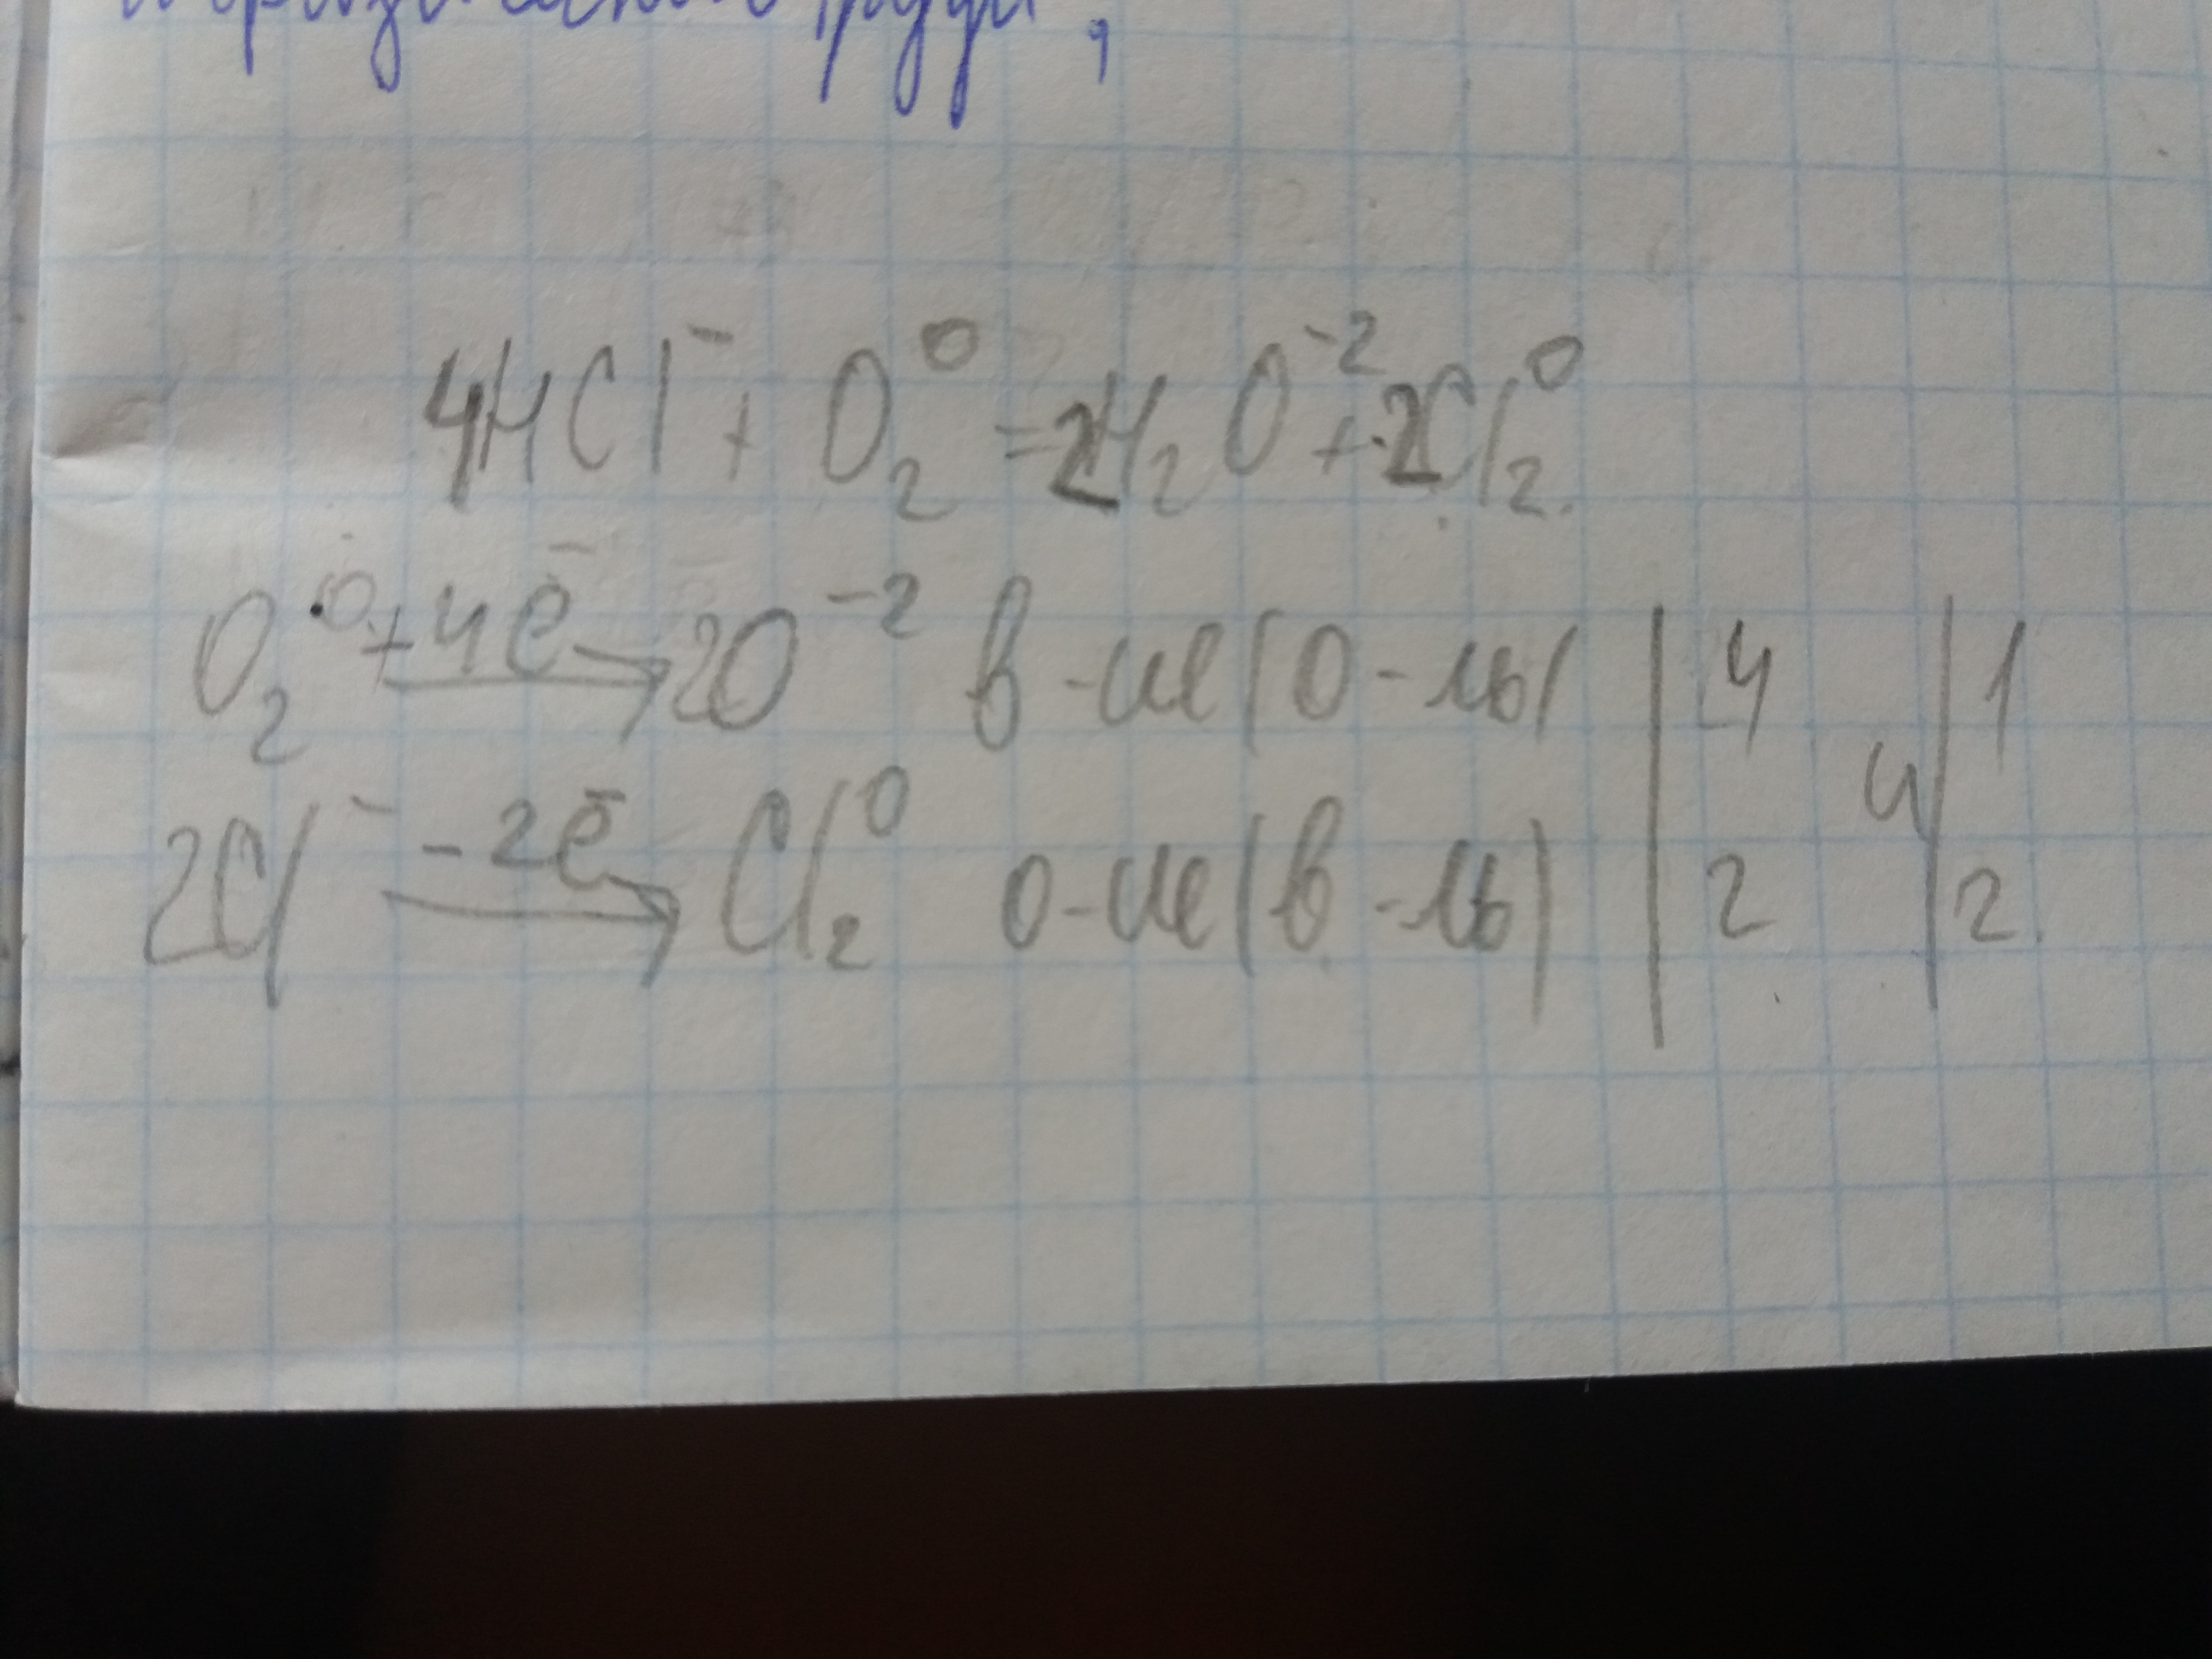 4HCl⁻ + O₂⁰ = 2H₂O⁻² + 2Cl₂⁰
O₂⁰ +4ē → 2O⁻² в-ие (о-ль) | 4 4 | 1
2Cl⁻ -2ē → Cl₂⁰ о-ие (в-ль) | 2 | 2